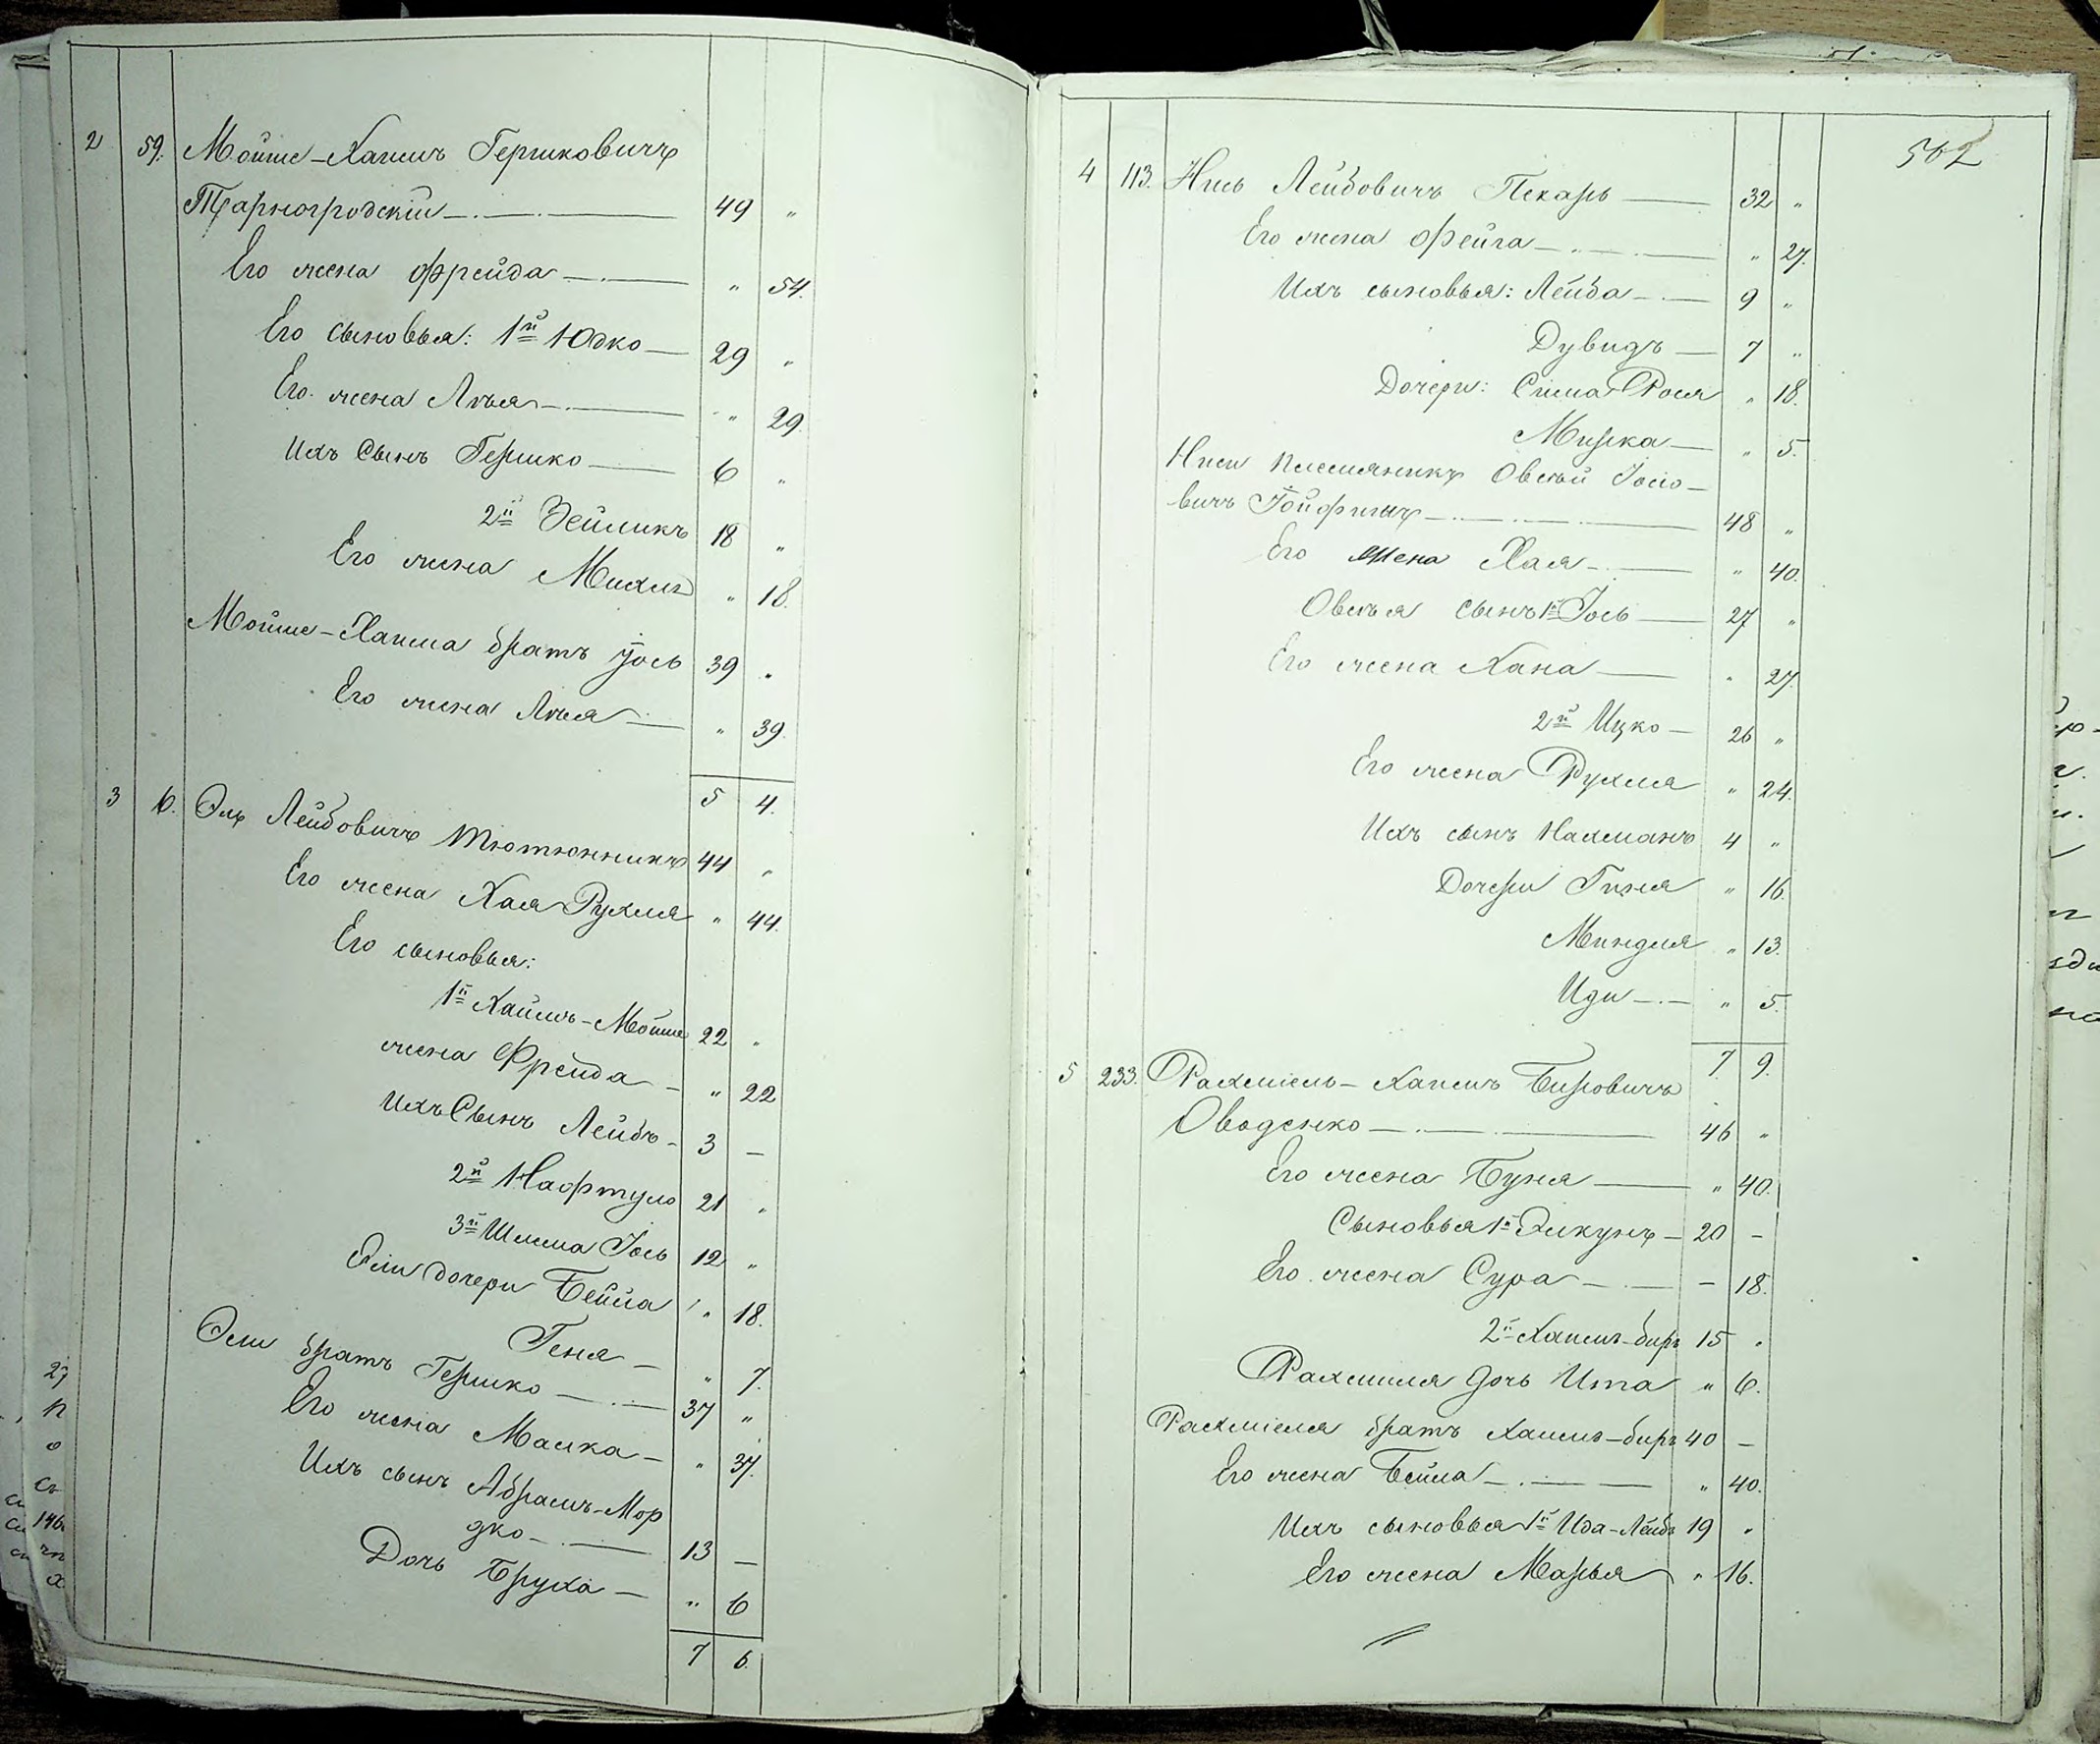 2 59. Мойше-Хаимъ Гершковичъ
Тарногродскій 49 "
Его жена Фрейда " 54.
Его сыновья: 1й Юдко 29 "
Его жена Лѣя " 29.
Ихъ Сынъ Гершко 6 "
2й Зейликъ 18 "
Его жена Михля " 18.
Мойше-Хаима братъ Іось 39 "
Его жена Лѣя " 39.
5 4.
3 6. Эль Лейбовичъ Тютюнникъ 44 "
Его жена Хая Рухля " 44.
Его сыновья:
1й Хаимъ-Мойше 22 "
жена Фрейда " 22
Ихъ Сынъ Лейбъ 3 —
2й Нафтула 21 "
3й Шлема Іось 12 "
Эли дочери Бейла " 18.
Геня " 7.
Эли братъ Гершко 37 "
Его жена Малка " 37.
Ихъ сынъ Абрамъ-Мор
дко 13 —
Дочь Бруха " 6
7 6.
502
4 113. Нись Лейбовичъ Пекарь 32 "
Его жена Фейга " 27.
Ихъ сыновья: Лейба 9 "
Дувидъ 7 "
Дочери: Сима Рося " 18.
Мирка " 5.
Ниси племянникъ Овсѣй Іосіо-
вичъ 48 "
Его жена Хая " 40.
Овсѣя сынъ 1й Іось 27 "
Его жена Хана " 27.
2й Ицко 26 "
Его жена Рухля " 24.
Ихъ сынъ Нахманъ 4 "
Дочери Гиня " 16.
Миндля " 13.
Иди " 5.
7. 9.
5 233. Рахміель-Хаимъ Беровичъ
Оводенко 46 "
Его жена Буня " 40.
Сыновья 1й Элькунъ 20 —
Его жена Сура — 18.
2й Хаимъ-беръ 15 "
Рахмиеля дочь Ита " 6.
Рахміеля братъ Хаимъ-беръ 40 —
Его жена Бейла " 40.
Ихъ сыновья 1й Ида-Лейбъ 19 "
Его жена Марья " 16.